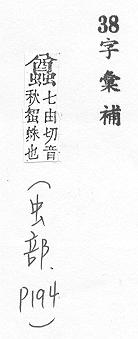 38
字彙補
七由切音
秋蛛也
(虫部.
P194)